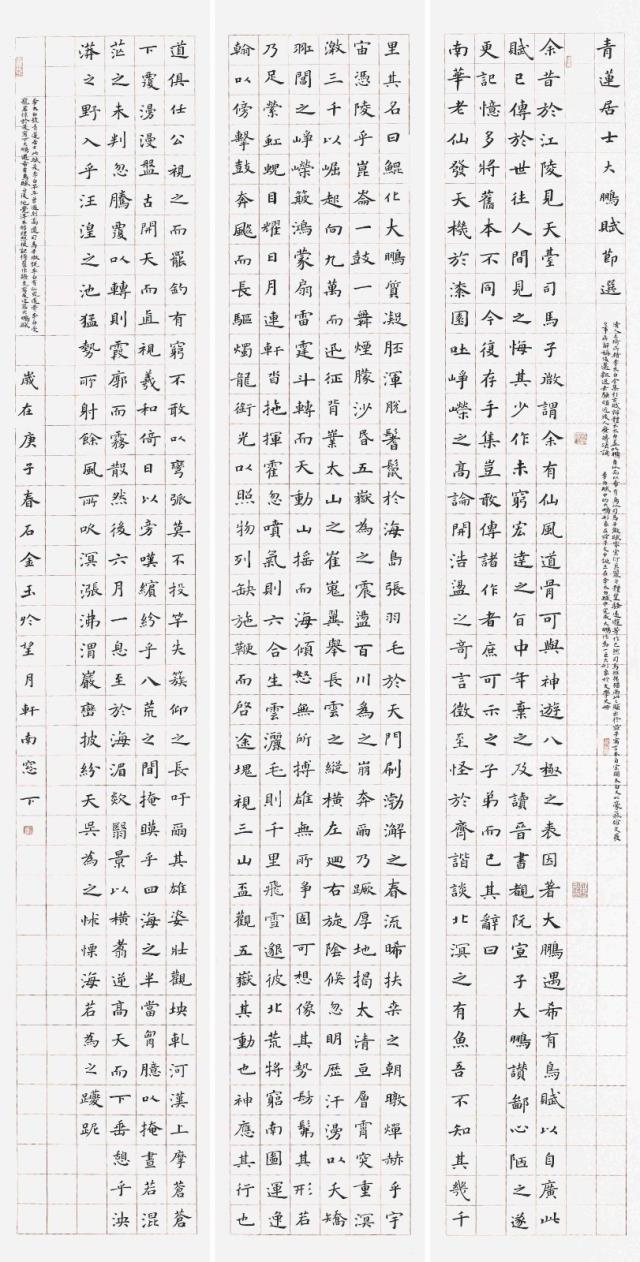 青蓮居士大鵬賦節選
余昔於江陵見天臺司馬子微謂余有仙風道骨可與神遊八極之表因著大鵬遇希有鳥賦以自廣此
賦已傳於世往人間見之悔其少作未窮宏達之旨中年棄之及讀晉書覩阮宣子大鵬讚鄙心陋之遂
更記憶多將舊本不同今復存手集豈敢傳諸作者庶可示之子弟而已其辭曰
南華老仙發天機於漆園吐崢嶸之高論開浩盪之奇言徵至怪於齊諧談北溟之有魚吾不知其幾千
里其名曰鯤化大鵬質凝胚渾脫鬐鬣於海島張羽毛於天門刷渤澥之春流晞扶桑之朝暾燀赫乎宇
宙憑陵乎崑崙一鼓一舞煙朦沙昏五嶽為之震盪百川為之崩奔爾乃蹶厚地揭太清亘層霄突重溟
激三千以崛起向九萬而迅征背嶪太山之崔嵬翼舉長雲之縱橫左廻右旋陰倏忽明歷汗漫以夭矯
羾閶之崢嶸簸鴻蒙扇雷霆斗轉而天動山搖而海傾怒無所搏雄無所爭固可想像其勢髣髴其形若
乃足縈虹蜺目耀日月連軒沓拖揮霍忽噴氣則六合生雲灑毛則千里飛雪邈彼北荒將窮南圖運逸
翰以傍擊鼓奔飈而長驅燭龍銜光以照物列缺施鞭而啓途塊視三山盃觀五嶽其動也神應其行也
道俱任公視之而罷釣有窮不敢以彎弧莫不投竿失簇仰之長吁爾其雄姿壯觀坱軋河漢上摩蒼蒼
下覆漫漫盤古開天而直視羲和倚日以旁嘆繽紛乎八荒之間掩暎乎四海之半當胷臆以掩晝若混
茫之未判忽騰覆以轉則霞廓而霧散然後六月一息至於海湄欻翳景以橫翥逆高天而下垂憩乎泱
漭之野入乎汪湟之池猛勢所射餘風所吹溟漲沸渭巖巒披紛天吳為之怵慄海若為之躨跜
歲在庚子春石金玉於望月軒南窓下